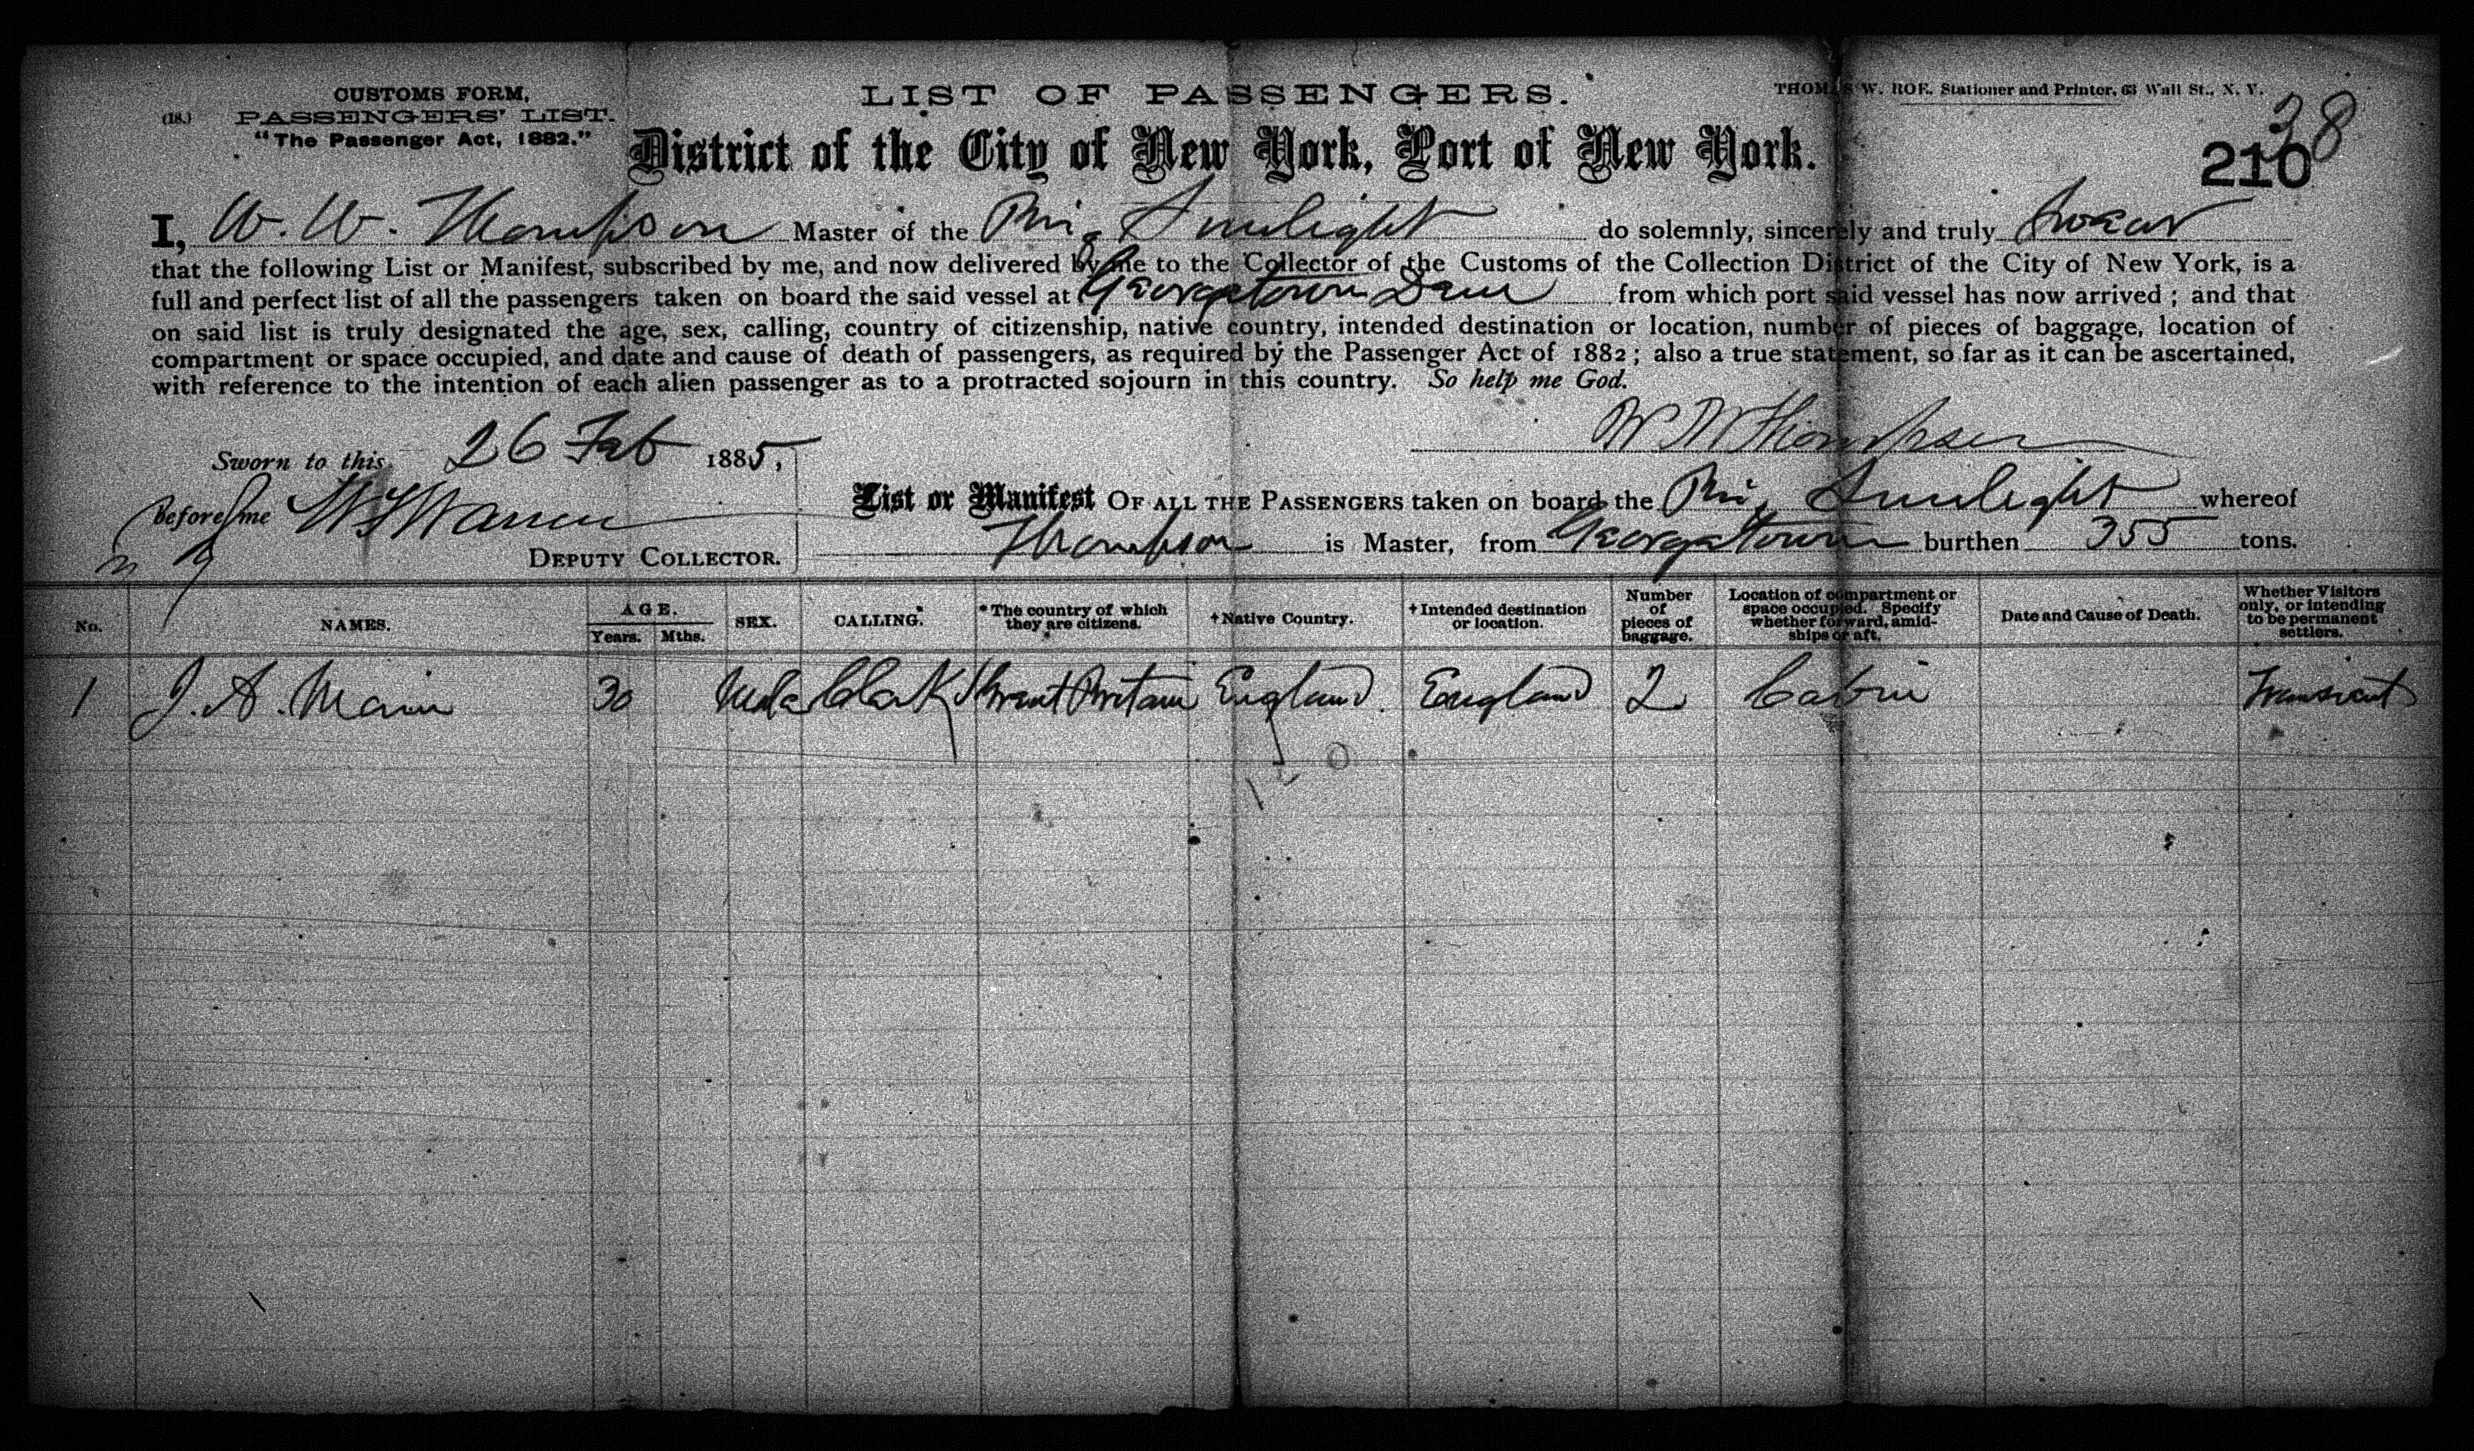 CUSTOMS FORM,
(18.) PASSENGERS' LIST.
"The Passenger Act, 1882."
LIST OF PASSENGERS.
THOMAS W. ROE, Stationer and Printer, 63 Wall St., N. Y.
38
District of the City of New York, Port of New York.
210
I, W. W. Thompson Master of the Brig Sunlight do solemnly, sincerely and truly swear
that the following List or Manifest, subscribed by me, and now delivered by me to the Collector of the Customs of the Collection District of the City of New York, is a
full and perfect list of all the passengers taken on board the said vessel at Georgetown Dem from which port said vessel has now arrived; and that
on said list is truly designated the age, sex, calling, country of citizenship, native country, intended destination or location, number of pieces of baggage, location of
compartment or space occupied, and date and cause of death of passengers, as required by the Passenger Act of 1882; also a true statement, so far as it can be ascertained,
with reference to the intention of each alien passenger as to a protracted sojourn in this country. So help me God.
W W Thompson
Sworn to this 26 Feb 1885,
Before me
DEPUTY COLLECTOR.
List or Manifest OF ALL THE PASSENGERS taken on board the Brig Sunlight whereof
Thompson is Master, from Georgetown burthen 355 tons.
No. NAMES. AGE. Years. Mths. SEX. CALLING.* *The country of which they are citizens. †Native Country. †Intended destination or location. Number of pieces of baggage. Location of compartment or space occupied. Specify whether forward, amidships or aft. Date and Cause of Death. Whether Visitors only, or intending to be permanent settlers.
1 J. A. Main 30 Male Clark Great Britain England England 2 Cabin Transient